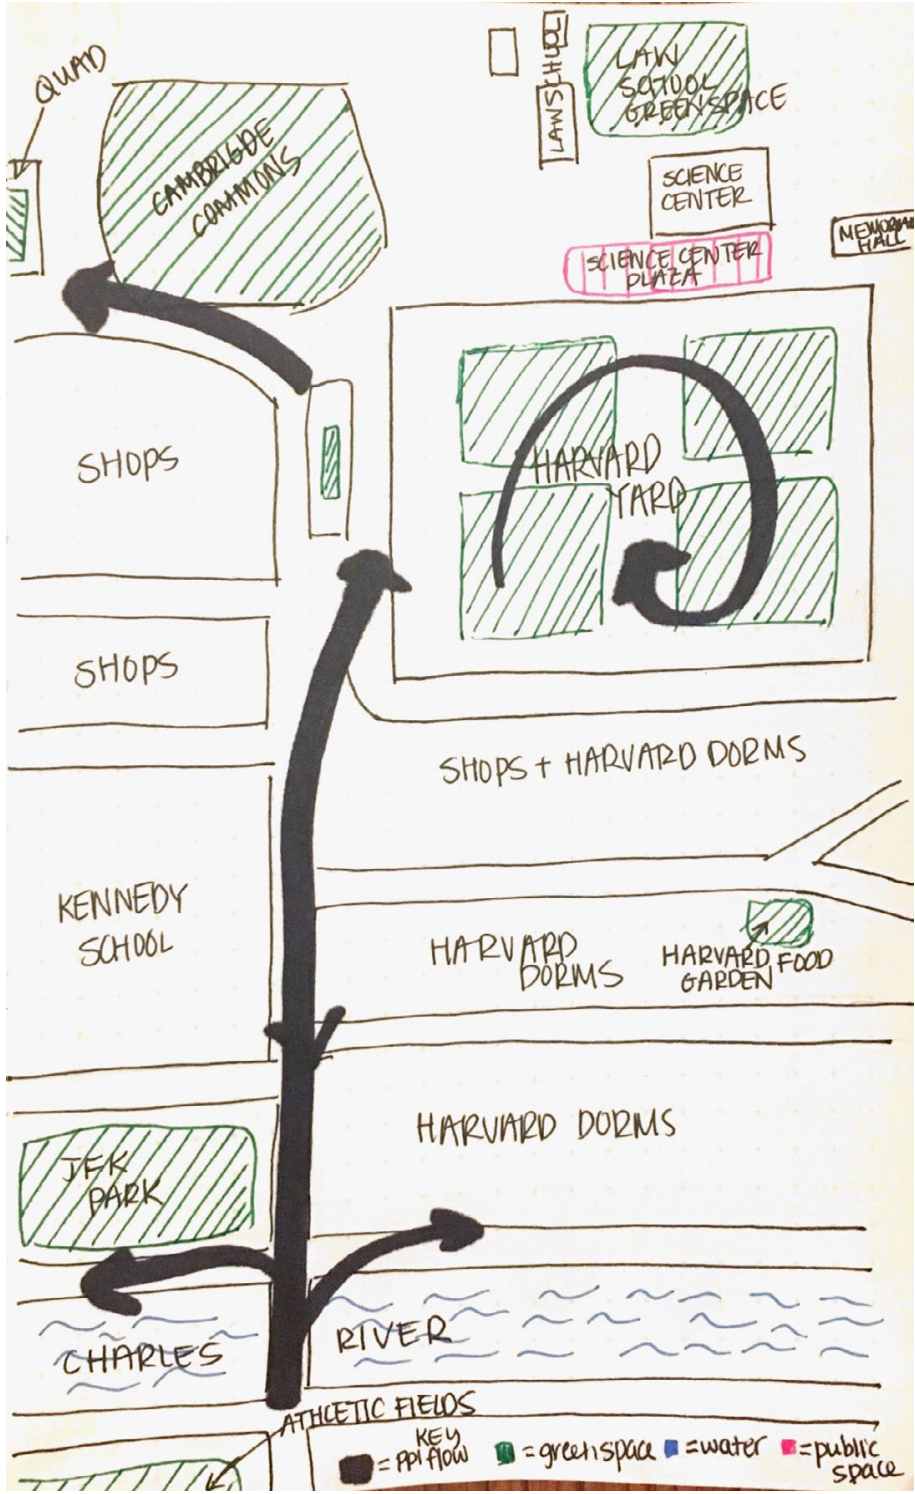 QUAD
CAMBRIGDE
COMMONS
LAW SCHOOL
LAW
SCHOOL
GREENSPACE
SCIENCE
CENTER
MEMORIAL
HALL
SCIENCE CENTER
PLAZA
SHOPS
HARVARD
YARD
SHOPS
SHOPS + HARVARD DORMS
KENNEDY
SCHOOL
HARVARD
DORMS
HARVARD FOOD
GARDEN
HARVARD DORMS
JFK
PARK
CHARLES RIVER
ATHLETIC FIELDS
KEY
= ppl flow
= greenspace
= water
= public
space